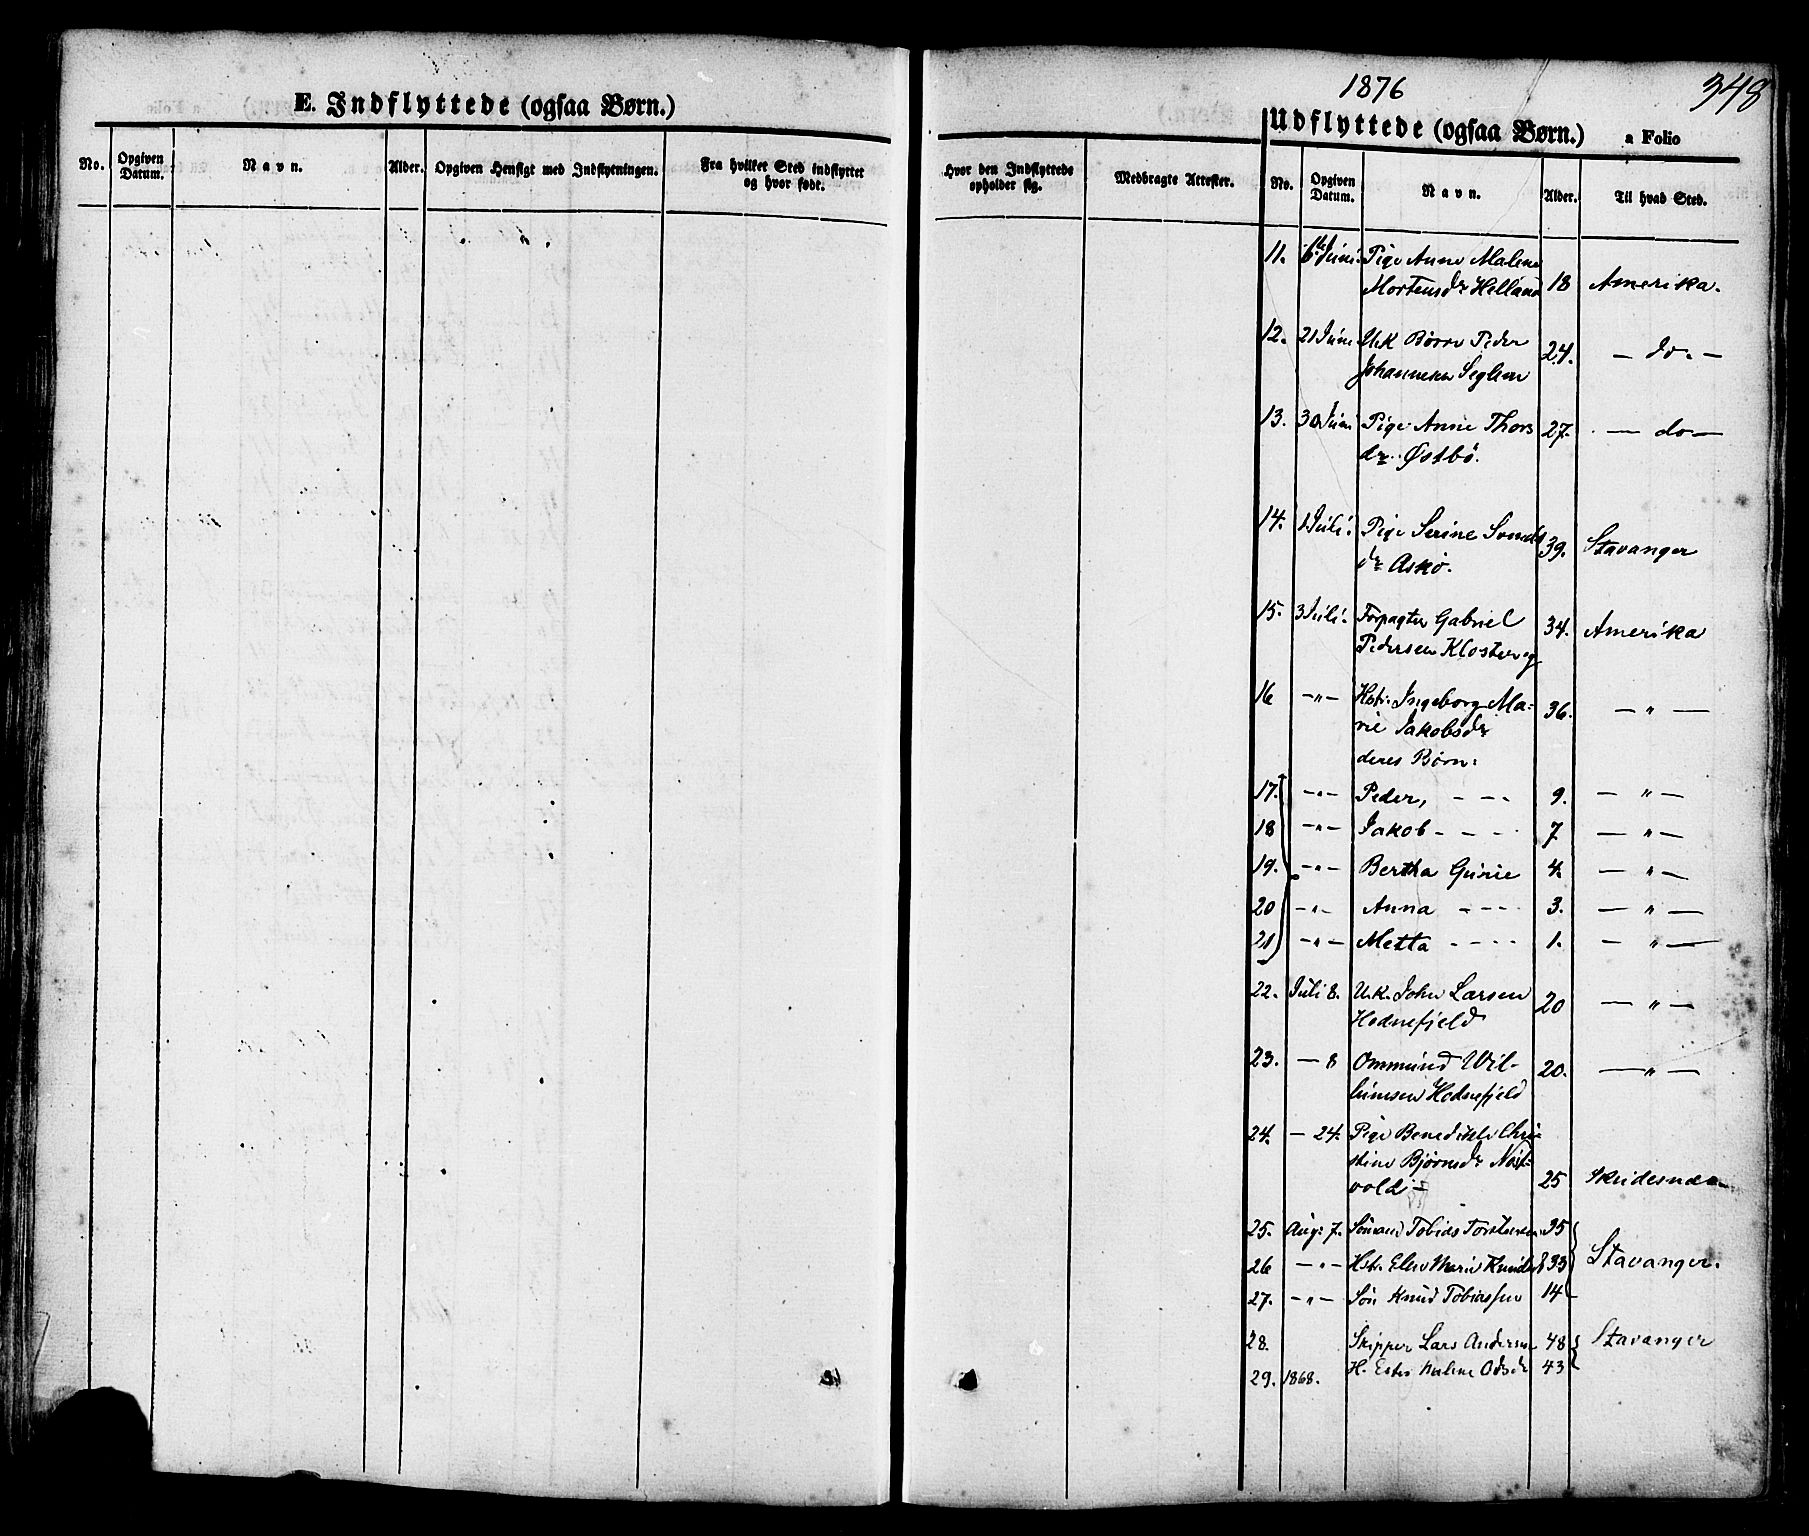 1876
348
E. Indflyttede (ogsaa Børn.)
Udflyttede (ogsaa Børn.) a Folio
No. Opgiven Datum. Navn. Alder. Opgiven Hensigt med Indflytningen. Fra hvilket Sted indflyttet og hvor født.
Hvor den Indflyttede opholder sig. Medbragte Attester. No. Opgiven Datum. Navn. Alder. Til hvad Sted.
11. 6te Juni. Pige Anne Malene
Mortensdr Helland 18 Amerika.
12. 21 Juni U.K Børre Peder
Johannesen Seglem 24. — do. —
13. 30 Juni Pige Anne Thors
dr. Østbö. 27. — do —
14. 1 Juli. Pige Serine Svends
dr Askø. 39. Stavanger
15. 3 Juli. Forpagter Gabriel
Pedersen Klosterøg 34. Amerika
16 — " — Hstr. Ingeborg Ma-
rie Jakobsdr 36. — " —
deres Børn:
17. — " — Peder, - - - 9. — " —
18 — " — Jakob - - - - 7 — " —
19. — " — Bertha Gurie 4. — " —
20 — " — Anna - - - - 3. — " —
21 — " — Metta - - - - 1. — " —
22. Juli 8. U.K. John Larsen
Hodnefjeld 20 — " —
23. — 8 Ommund Wil-
lumsen Hodnefjeld 20. — " —
24. — 24. Pige Benedikte Chri
stine Bjørnsdr
vold — 25 Skudesnæs
25. Aug: 7. Sömand Tobias Torstensen 35
26 — " — Hstr. Elen Marie Knudsd 33 Stavanger.
27. — " — Sön Knud Tobiassen 14
28. Skipper Lars Andersen 48 Stavanger
29. 1868. H. Ester Malene Odsdr 43